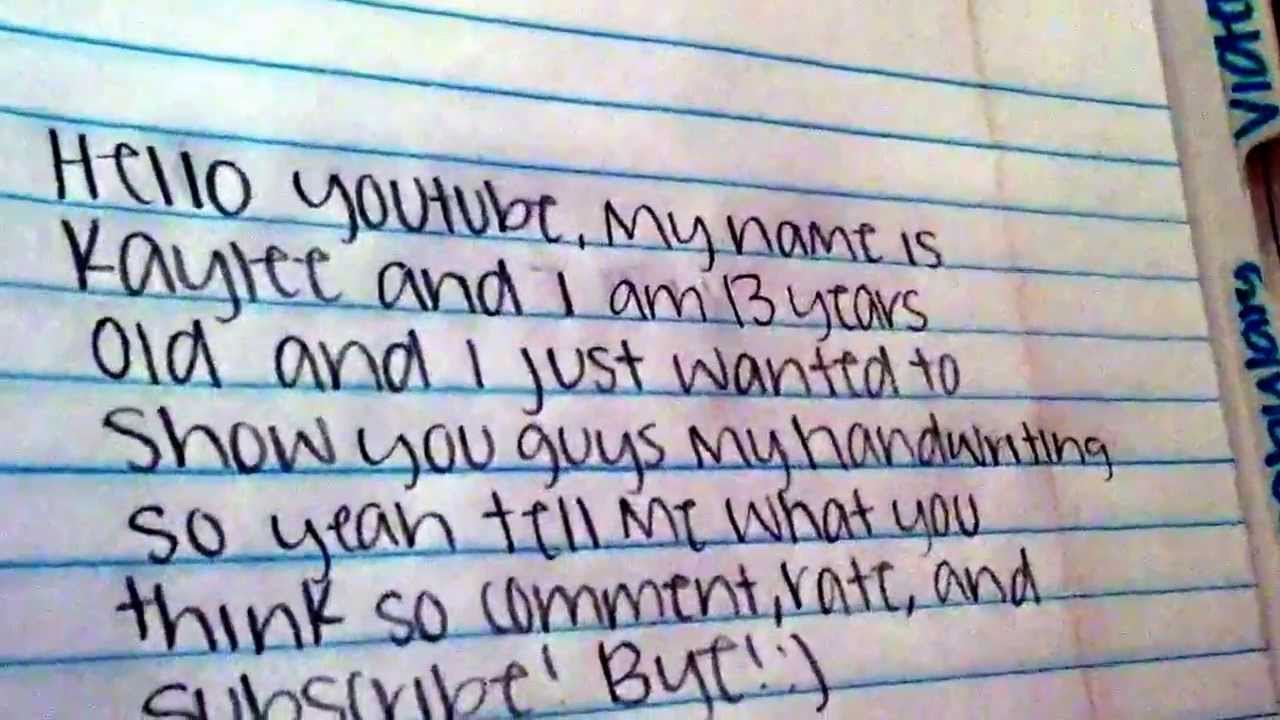 Hello youtube, my name is
Kaylee and I am 13 years
old and I just wanted to
show you guys my handwriting
so yeah tell me what you
think so comment, rate, and
subscribe! Bye! :)